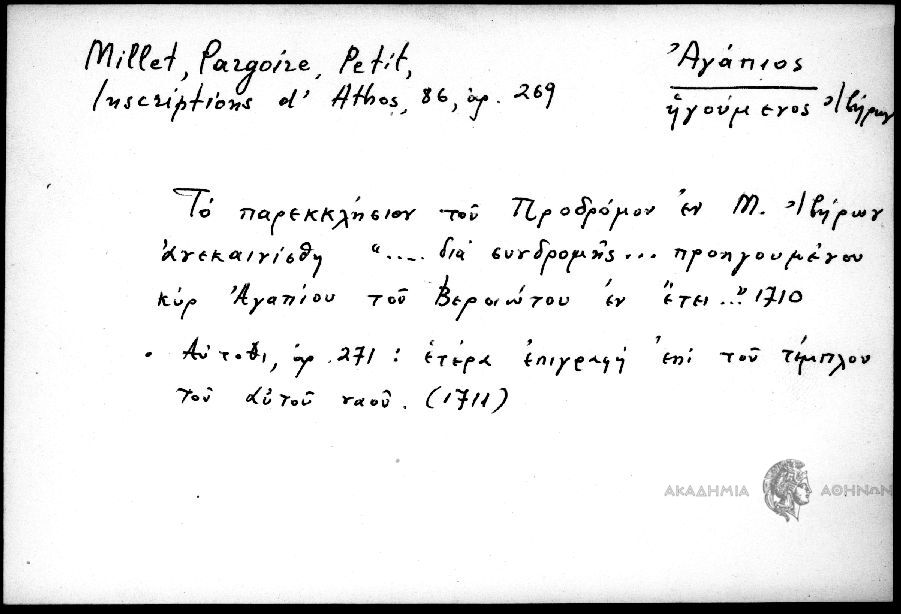 Millet, Pargoire, Petit,
Inscriptions d' Athos, 86, ἀρ. 269
Ἀγάπιος
ἡγούμενος Ἰβήρων
Τό παρεκκλήσιον τοῦ Προδρόμου ἐν Μ. Ἰβήρων
ἀνεκαινίσθη ".... διά συνδρομῆς... προηγουμένου
κύρ Ἀγαπίου τοῦ Βεροιώτου ἐν ἔτει..." 1710
• Αὐτόθι, ἀρ. 271 : ἑτέρα ἐπιγραφή ἐπί τοῦ τέμπλου
τοῦ αὐτοῦ ναοῦ. (1711)
ΑΚΑΔΗΜΙΑ ΑΘΗΝΩΝ